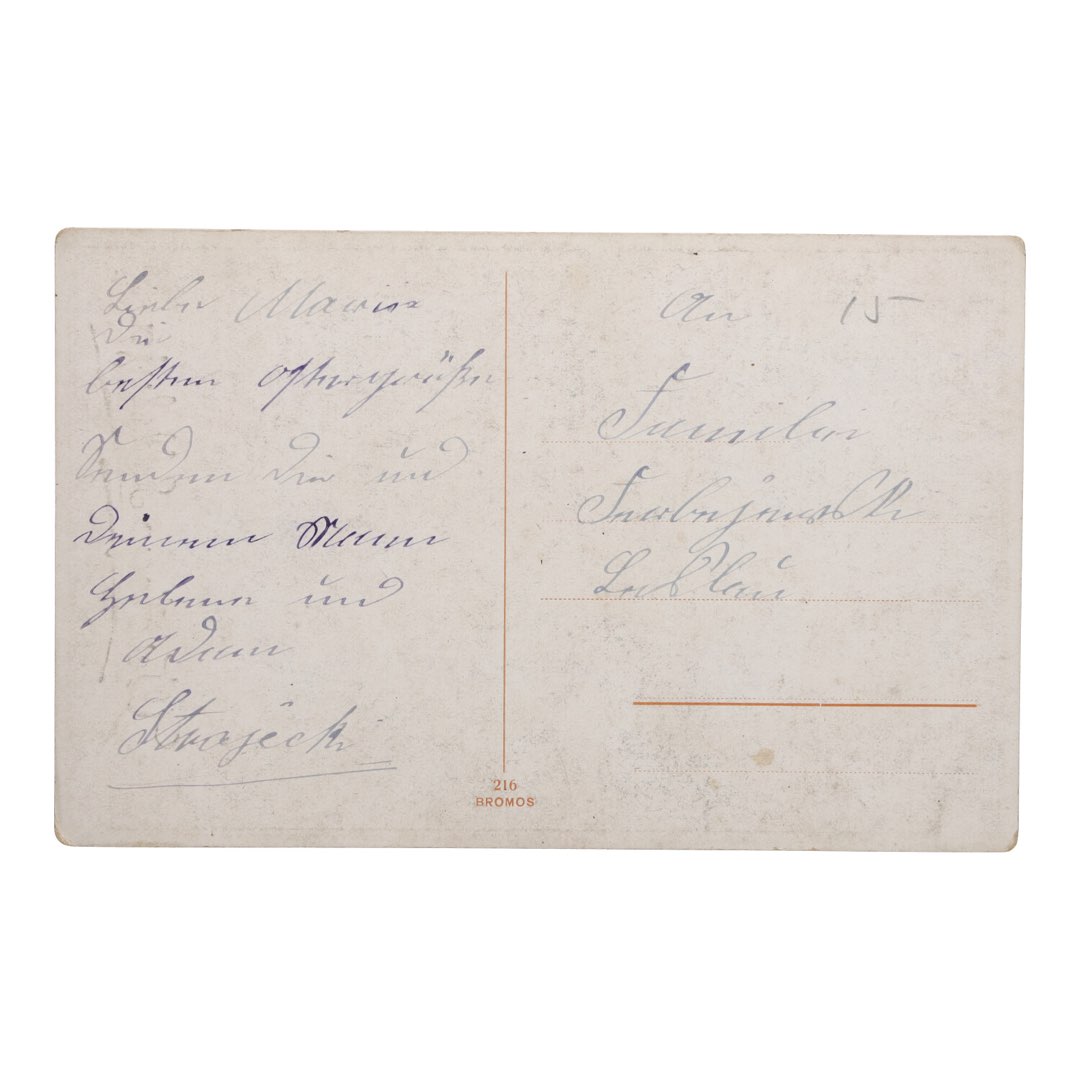 Liebe Marie
Die
besten Ostergrüße
Senden Dir und
Deinem Mann
Helene und
Adam
Strajecki
216
BROMOS
An 15
Familie
Leslau